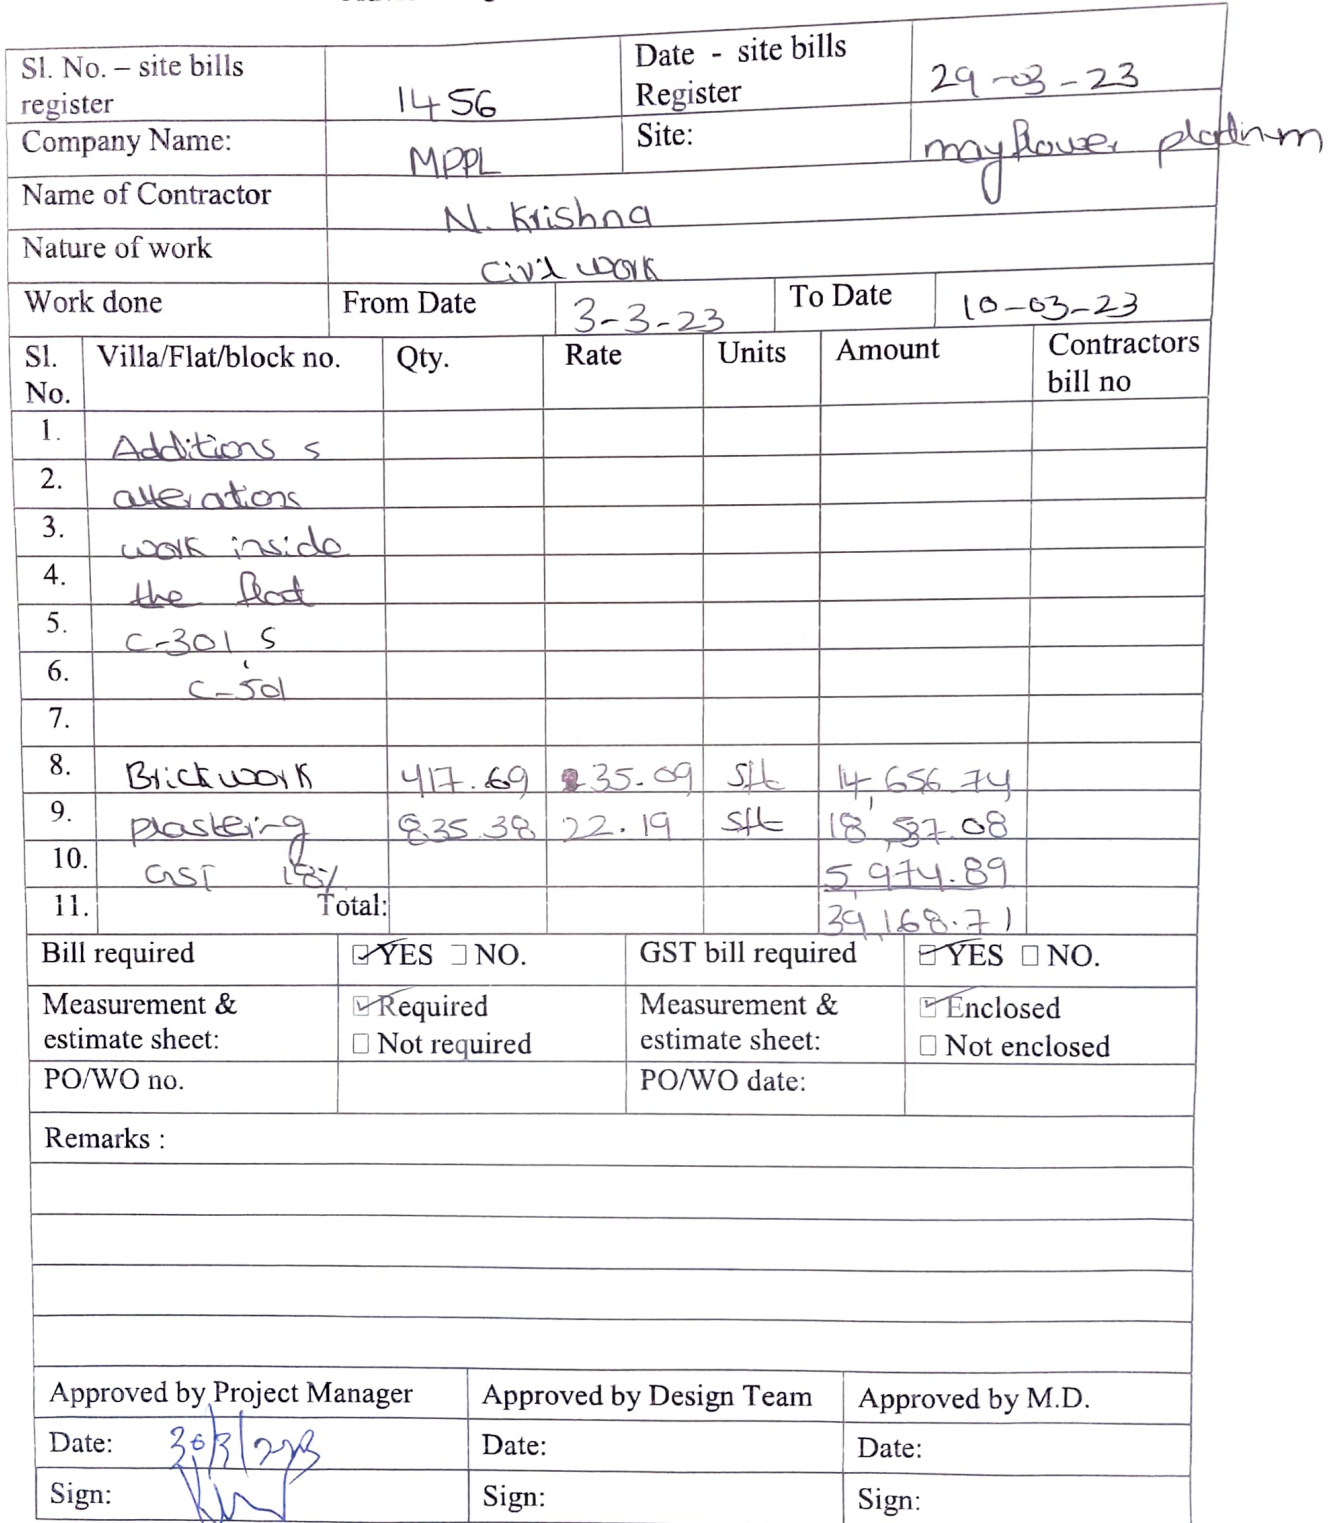 Sl. No. – site bills register 1456 Date - site bills Register 29-03-23
Company Name: MPPL Site: mayflower platinum
Name of Contractor N. Krishna
Nature of work civil work
Work done From Date 3-3-23 To Date 10-03-23
Sl. No. Villa/Flat/block no. Qty. Rate Units Amount Contractors bill no
1. Additions s
2. alterations
3. work inside
4. the flat
5. C-301 s
6. C-501
7.
8. Brickwork 417.69 35.09 sft 14,656.74
9. plastering 835.38 22.19 sft 18,537.08
10. GST 18% 5,974.89
11. Total: 39,168.71
Bill required YES NO. GST bill required YES NO.
Measurement & estimate sheet: Required Not required Measurement & estimate sheet: Enclosed Not enclosed
PO/WO no. PO/WO date:
Remarks :
Approved by Project Manager Approved by Design Team Approved by M.D.
Date: 30/3/223 Date: Date:
Sign: Sign: Sign: